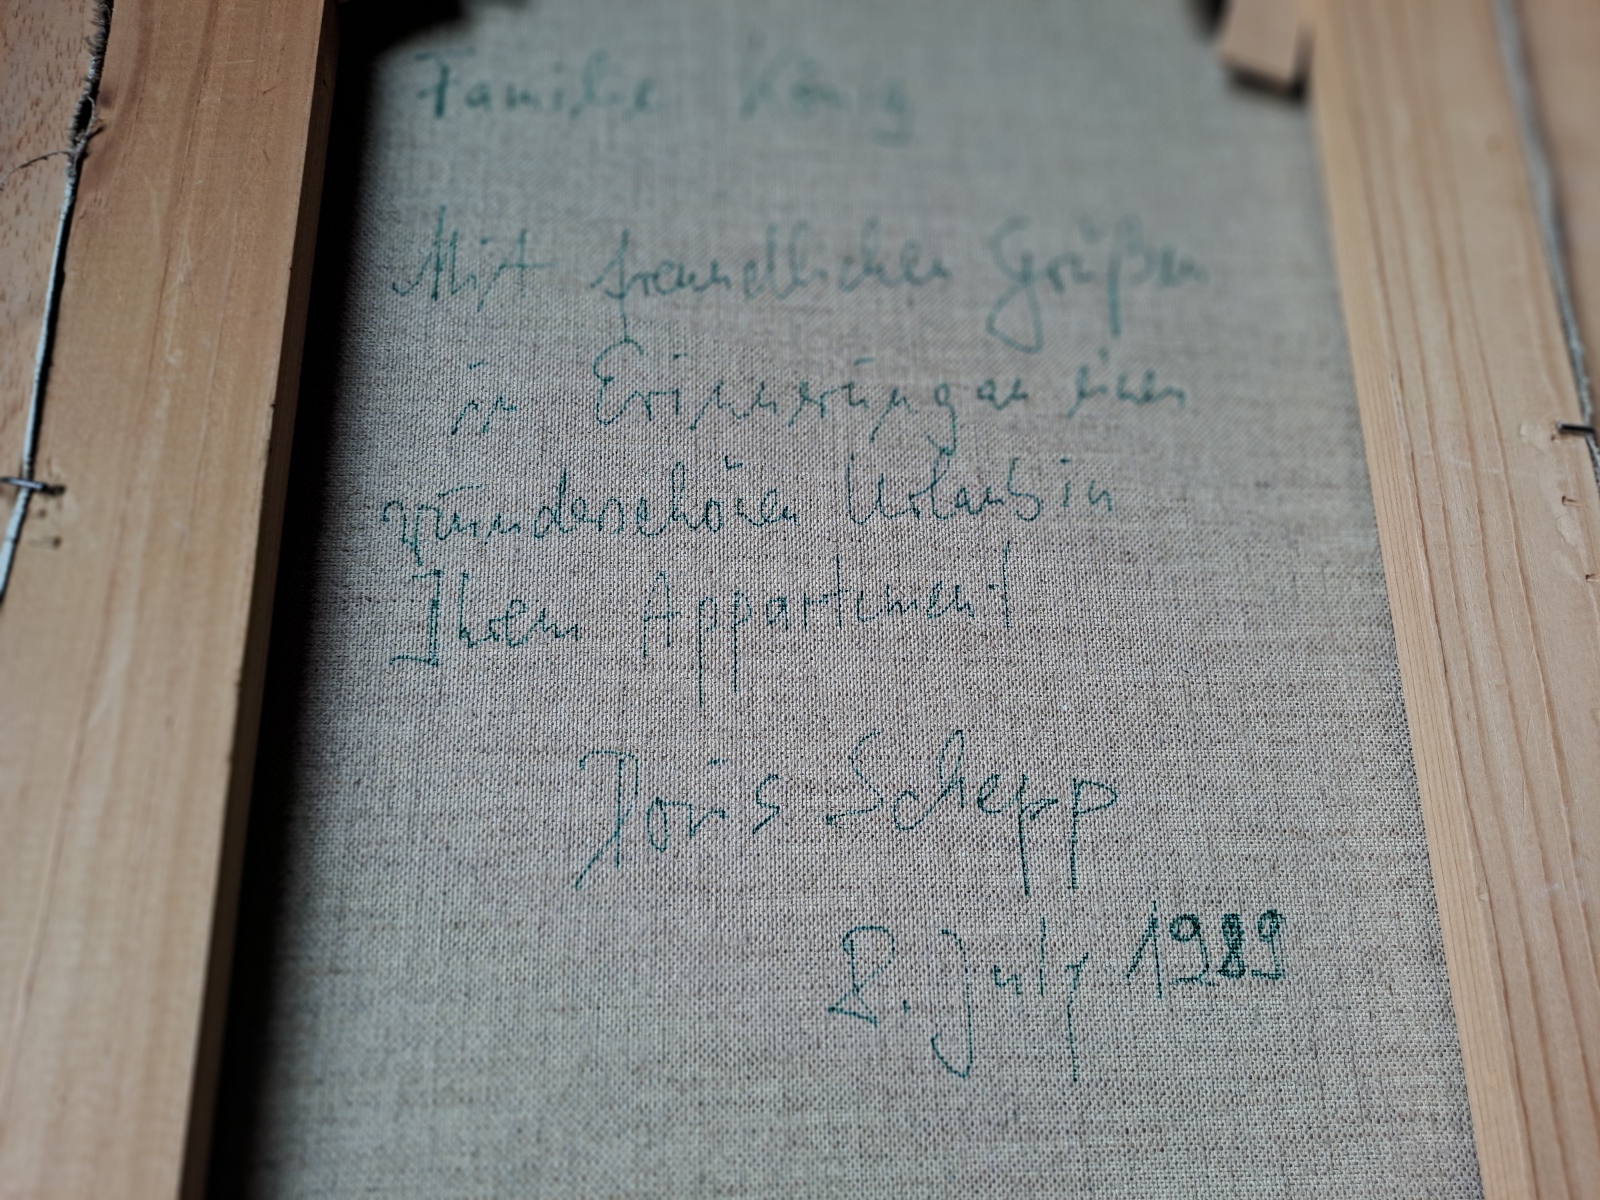 Familie König
Mit freundlichen Grüßen
in Erinnerung an einen
wunderschönen Urlaub in
Ihrem Appartement
Doris Schepp
8. July 1989